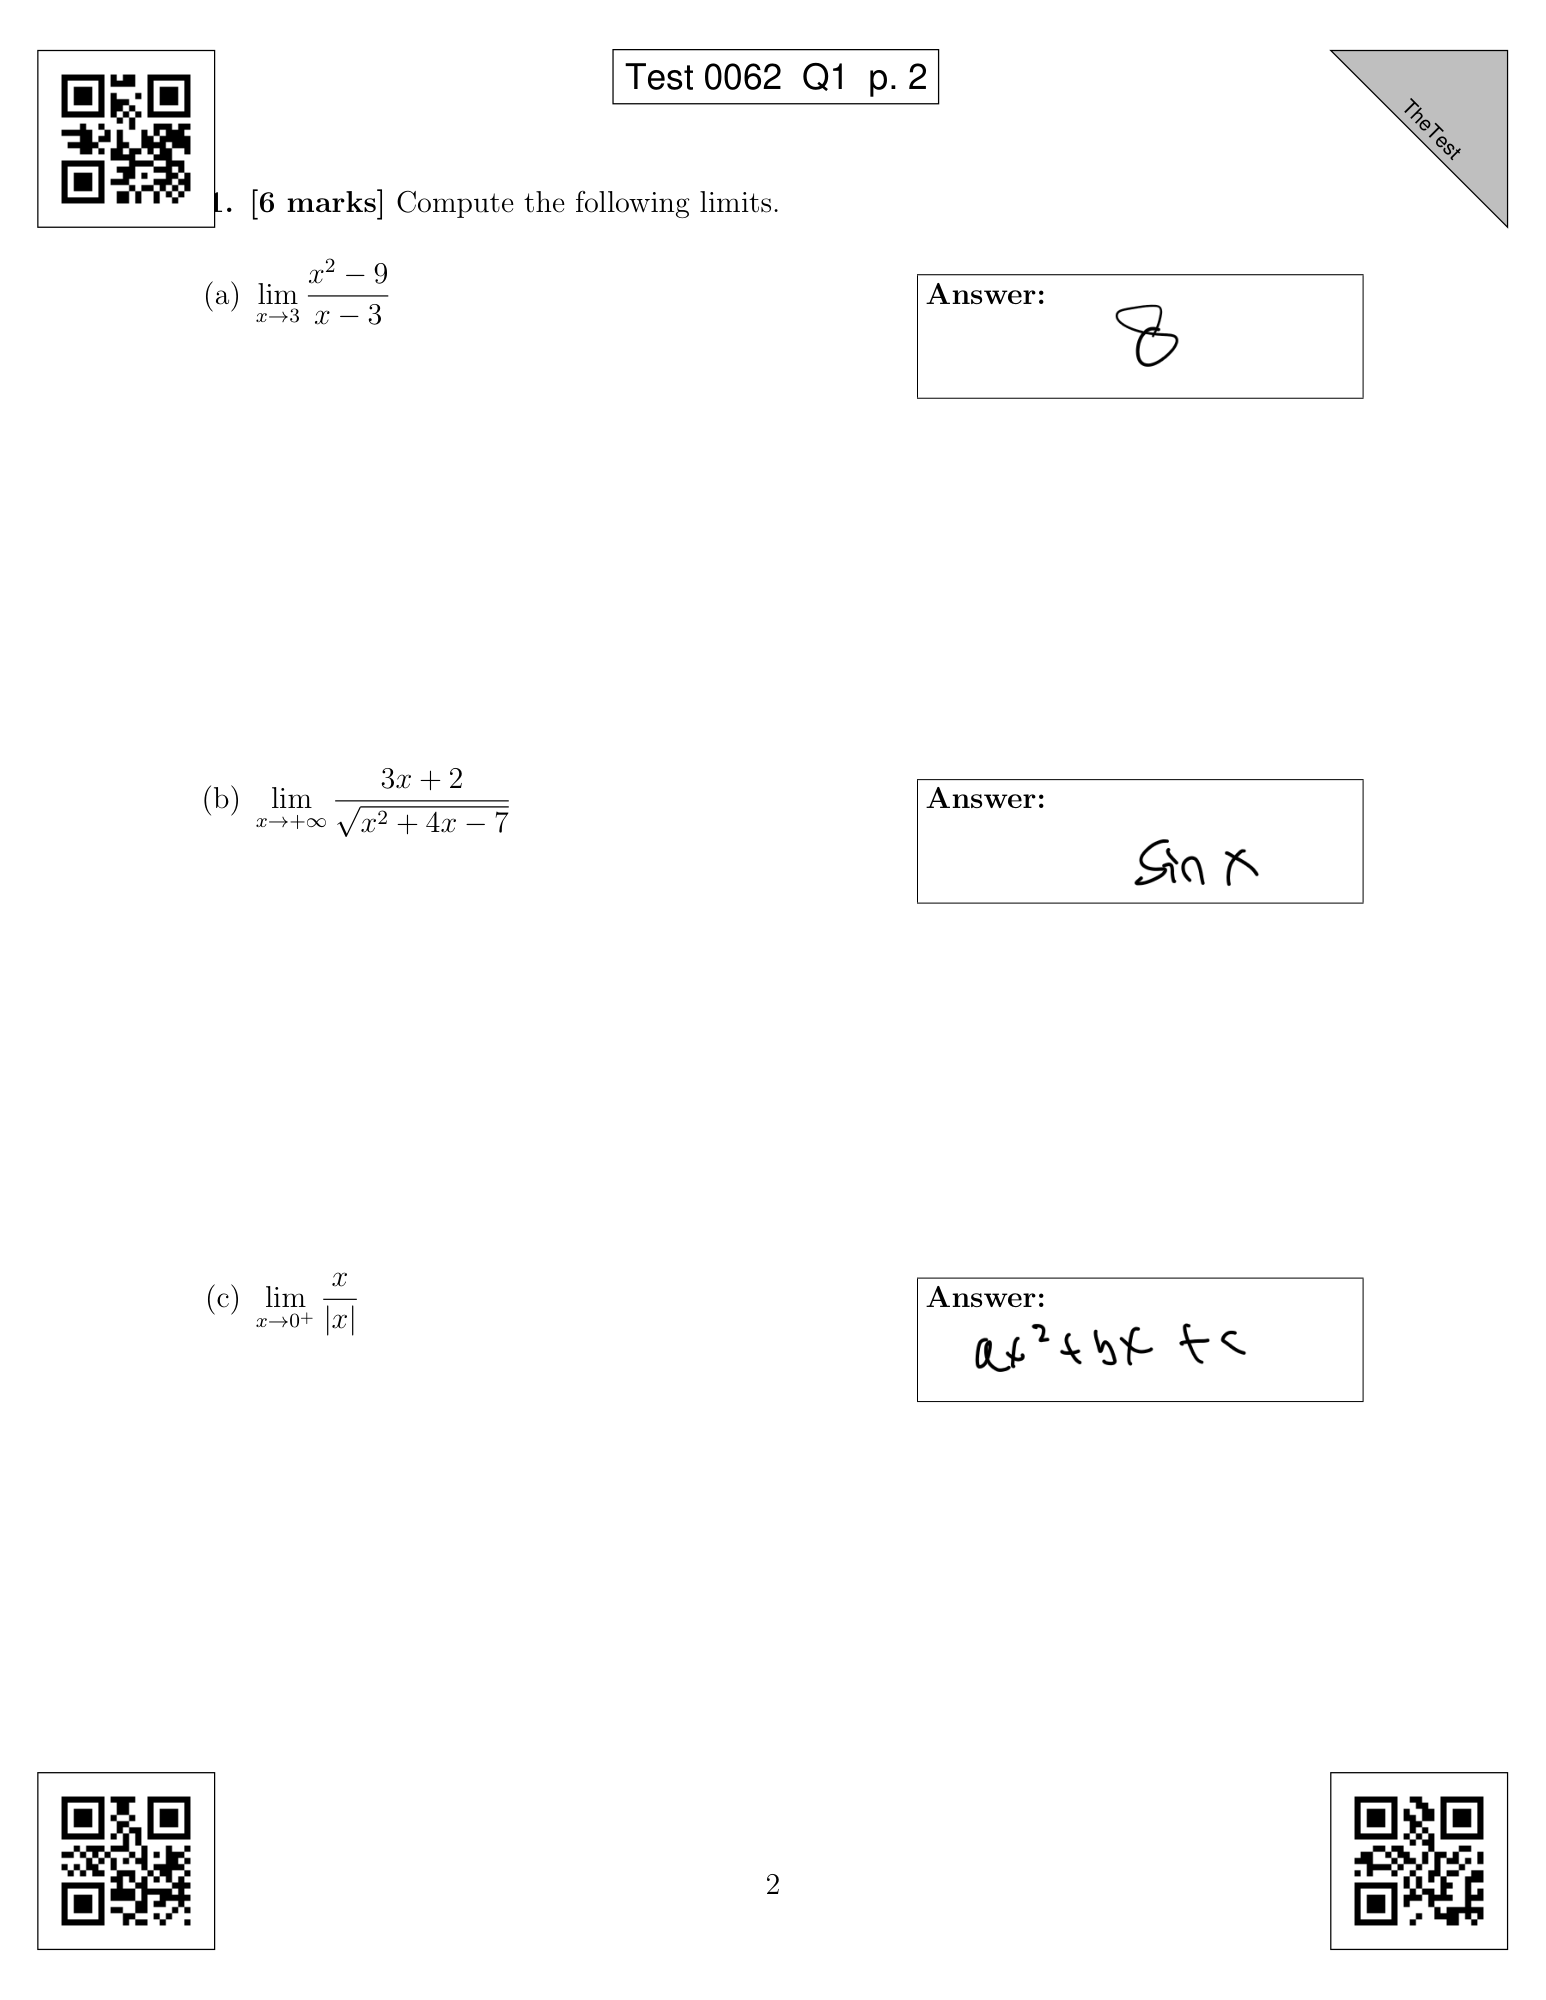 Test 0062 Q1 p. 2
TheTest
1. [6 marks] Compute the following limits.
(a) lim x→3 (x² − 9)/(x − 3)
Answer:
8
(b) lim x→+∞ (3x + 2)/√(x² + 4x − 7)
Answer:
sin x
(c) lim x→0⁺ x/|x|
Answer:
ax² + bx + c
2